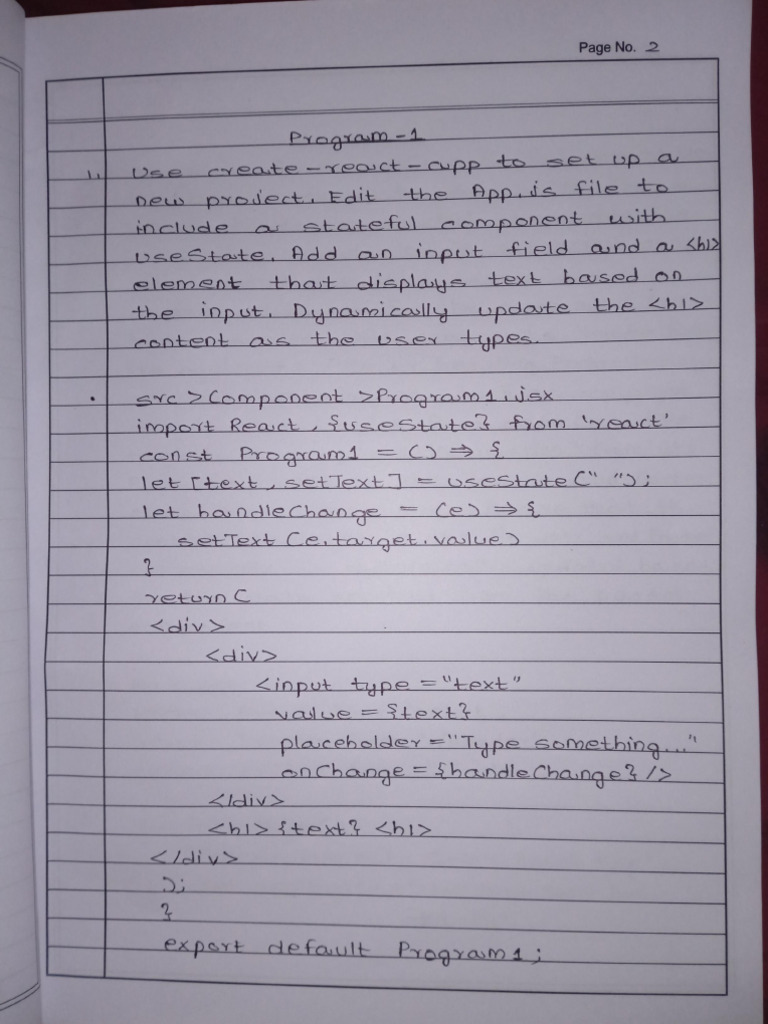 Page No. 2
Program-1
1. Use create-react-app to set up a
new project. Edit the App.js file to
include a stateful component with
useState. Add an input field and a <h1>
element that displays text based on
the input. Dynamically update the <h1>
content as the user types.
• src > Component > Program1.jsx
import React, {useState} from 'react'
const Program1 = () => {
let [text, setText] = useState (" ");
let handleChange = (e) => {
setText (e.target.value)
}
return (
<div>
<div>
<input type = "text"
value = {text}
placeholder = "Type something..."
onChange = {handleChange} />
</div>
<h1> {text} <h1>
</div>
);
}
export default Program1;